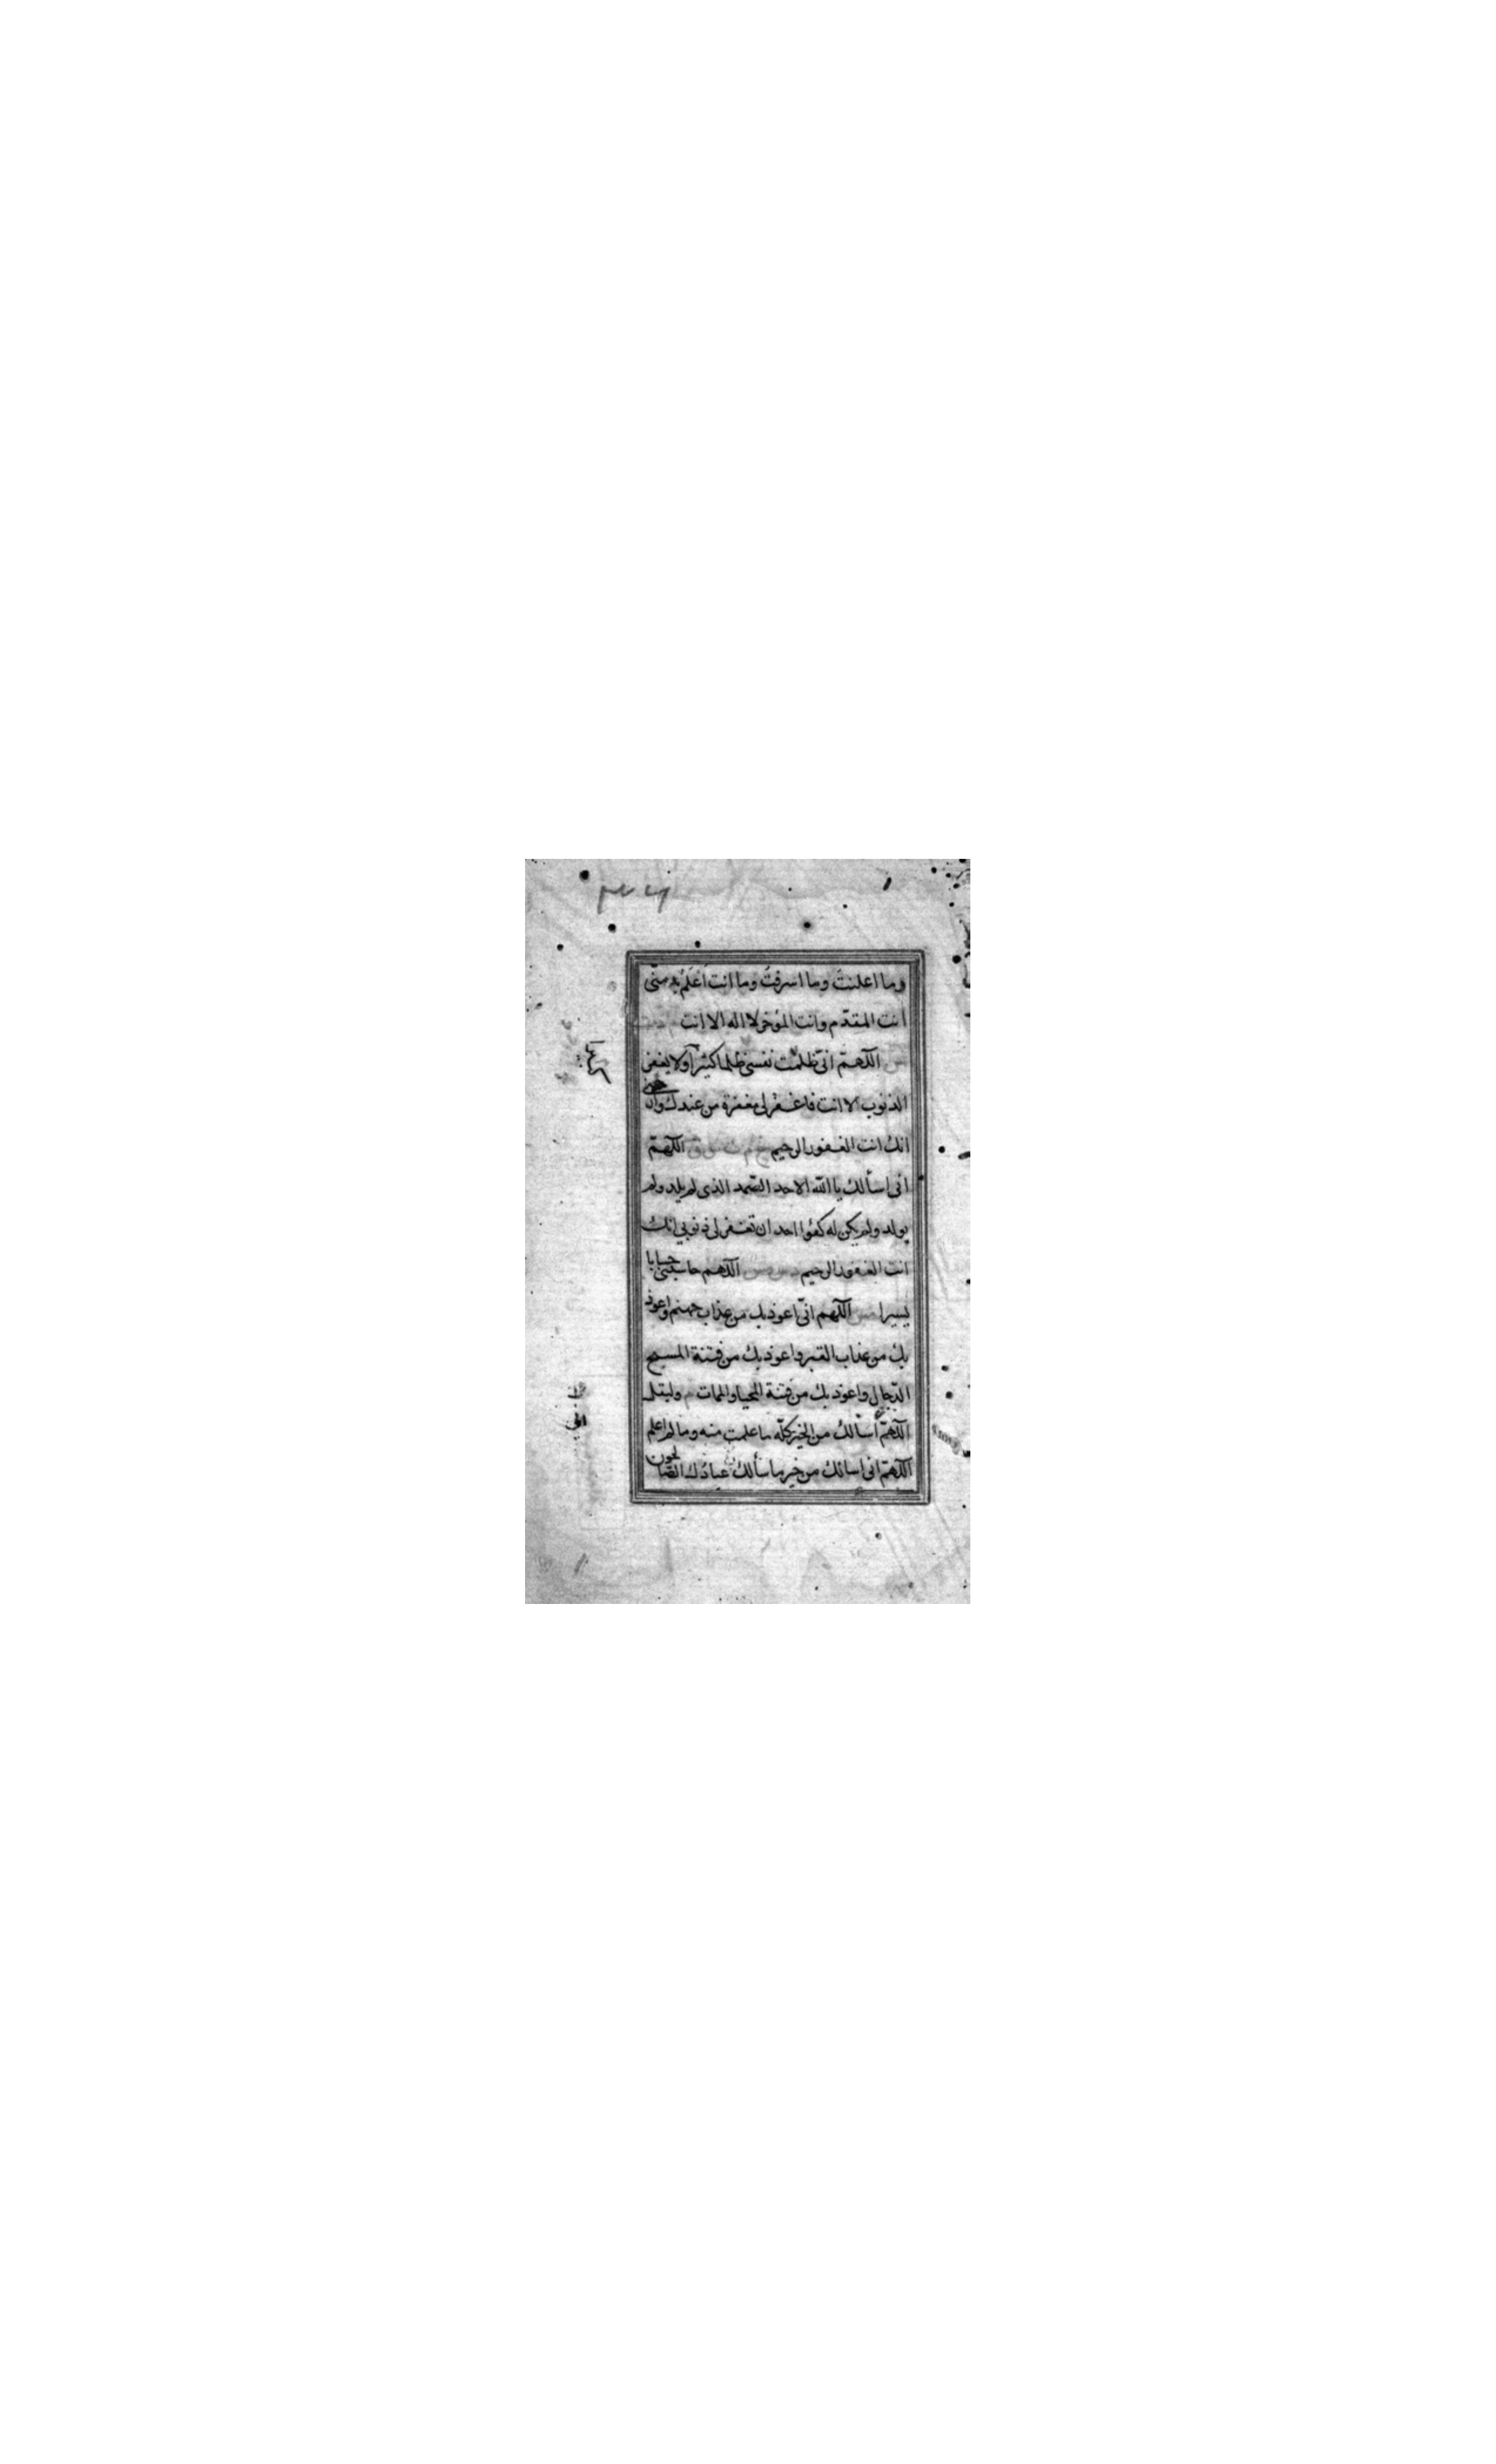 وما اعلنتَ وما اسرفتُ وما انت اَعْلَمُ به منّى
انت المقدّم وانت المؤخر لا اله الا انت
اللّهمّ انّى ظلمت نفسى ظلما كثيرا ولا يغفر
الذنوب الا انت فاغفر لى مغفرة من عندك وارحمنى
انك انت الغفور الرحيم خ م ت س ق اللّهمّ
انى اسألك يا اللّه الاحد الصّمد الذى لم يلد ولم
يولد ولم يكن له كفوا احد ان تغفر لى ذنوبى انك
انت الغفور الرحيم د س مس اللّهم حاسبنى حسابا
يسيرا مس اللّهم انّى اعوذ بك من عذاب جهنم واعوذ
بك من عذاب القبر واعوذ بك من فتنة المسيح
الدّجال واعوذ بك من فتنة المحيا والممات م وليقل
اللّهمّ اسألك من الخير كلّه ما علمت منه وما لم اعلم
اللّهمّ انى اسالك من خير ما سألك عبادك الصالحون
انى